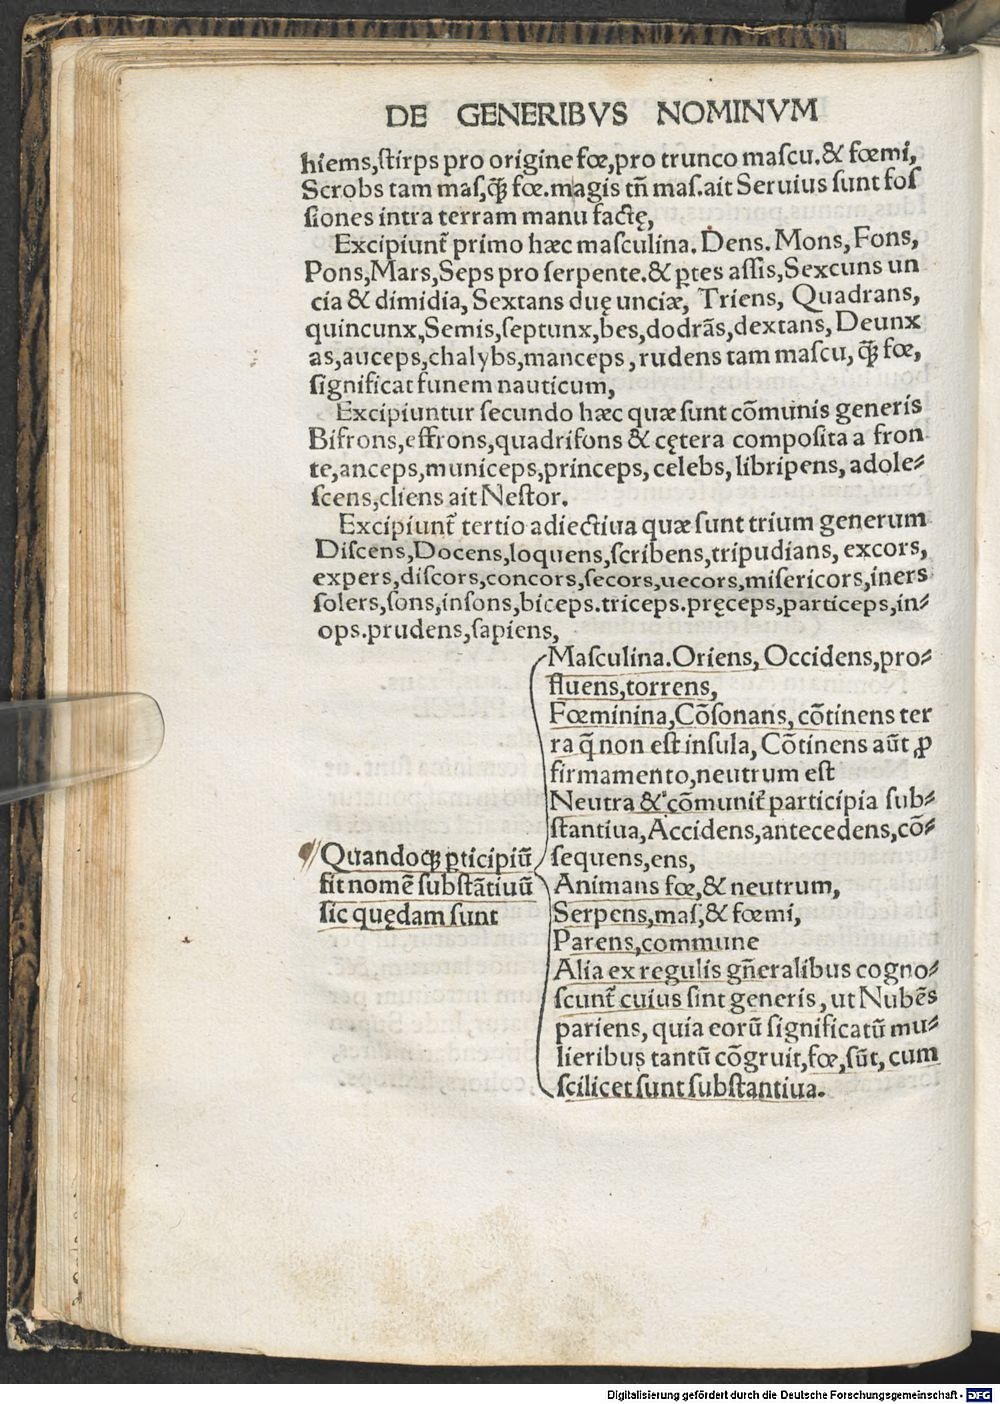 DE GENERIBVS NOMINVM
hiems,ſtirps pro origine fœ,pro trunco maſcu.& fœmi,
Scrobs tam maſ,q̃ꝫ fœ.magis tñ maſ.ait Seruius ſunt foſ
ſiones intra terram manu factę,
Excipiunt᷑ primo hæc maſculina. Dens. Mons, Fons,
Pons,Mars,Seps pro ſerpente.& ꝑtes aſſis,Sexcuns un
cia & dimidia, Sextans duę unciæ, Triens, Quadrans,
quincunx,Semis,ſeptunx,bes,dodrãs,dextans, Deunx
as,auceps,chalybs,manceps, rudens tam maſcu, q̃ꝫ fœ,
ſignificat funem nauticum,
Excipiuntur ſecundo hæc quæ ſunt cõmunis generis
Bifrons,effrons,quadrifons & cętera compoſita a fron
te,anceps,municeps,princeps, celebs, libripens, adole⸗
ſcens,cliens ait Neſtor.
Excipiunt᷑ tertio adiectiua quæ ſunt trium generum
Diſcens,Docens,loquens,ſcribens,tripudians, excors,
expers,diſcors,concors,ſecors,uecors,miſericors,iners
ſolers,ſons,inſons,biceps.triceps.pręceps,particeps,in⸗
ops.prudens,ſapiens,
Quandoqꝫ ꝑticipiũ
fit nomẽ ſubſtãtiuũ
ſic quędam ſunt
Maſculina.Oriens, Occidens,pro⸗
fluens,torrens,
Fœminina,Cõſonans, cõtinens ter
ra q̃ non eſt inſula, Cõtinens aũt ꝓ
firmamento,neutrum eſt
Neutra & cõmunit᷑ participia ſub⸗
ſtantiua, Accidens,antecedens,cõ⸗
ſequens,ens,
Animans fœ,& neutrum,
Serpens,maſ,& fœmi,
Parens,commune
Alia ex regulis gñeralibus cogno⸗
ſcunt᷑ cuius ſint generis, ut Nubẽs
pariens, quia eorũ ſignificatũ mu⸗
lieribus tantũ cõgruit,fœ,ſũt, cum
ſcilicet ſunt ſubſtantiua.
Digitalisierung gefördert durch die Deutsche Forschungsgemeinschaft - DFG